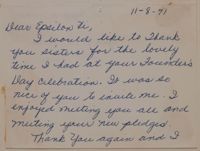 11-8-71
Dear Epsilon Xi,
I would like to thank
you sisters for the lovely
time I had at your Founder's
Day Celebration. It was so
nice of you to invite me. I
enjoyed meeting you all and
meeting your new pledges.
Thank You again and I